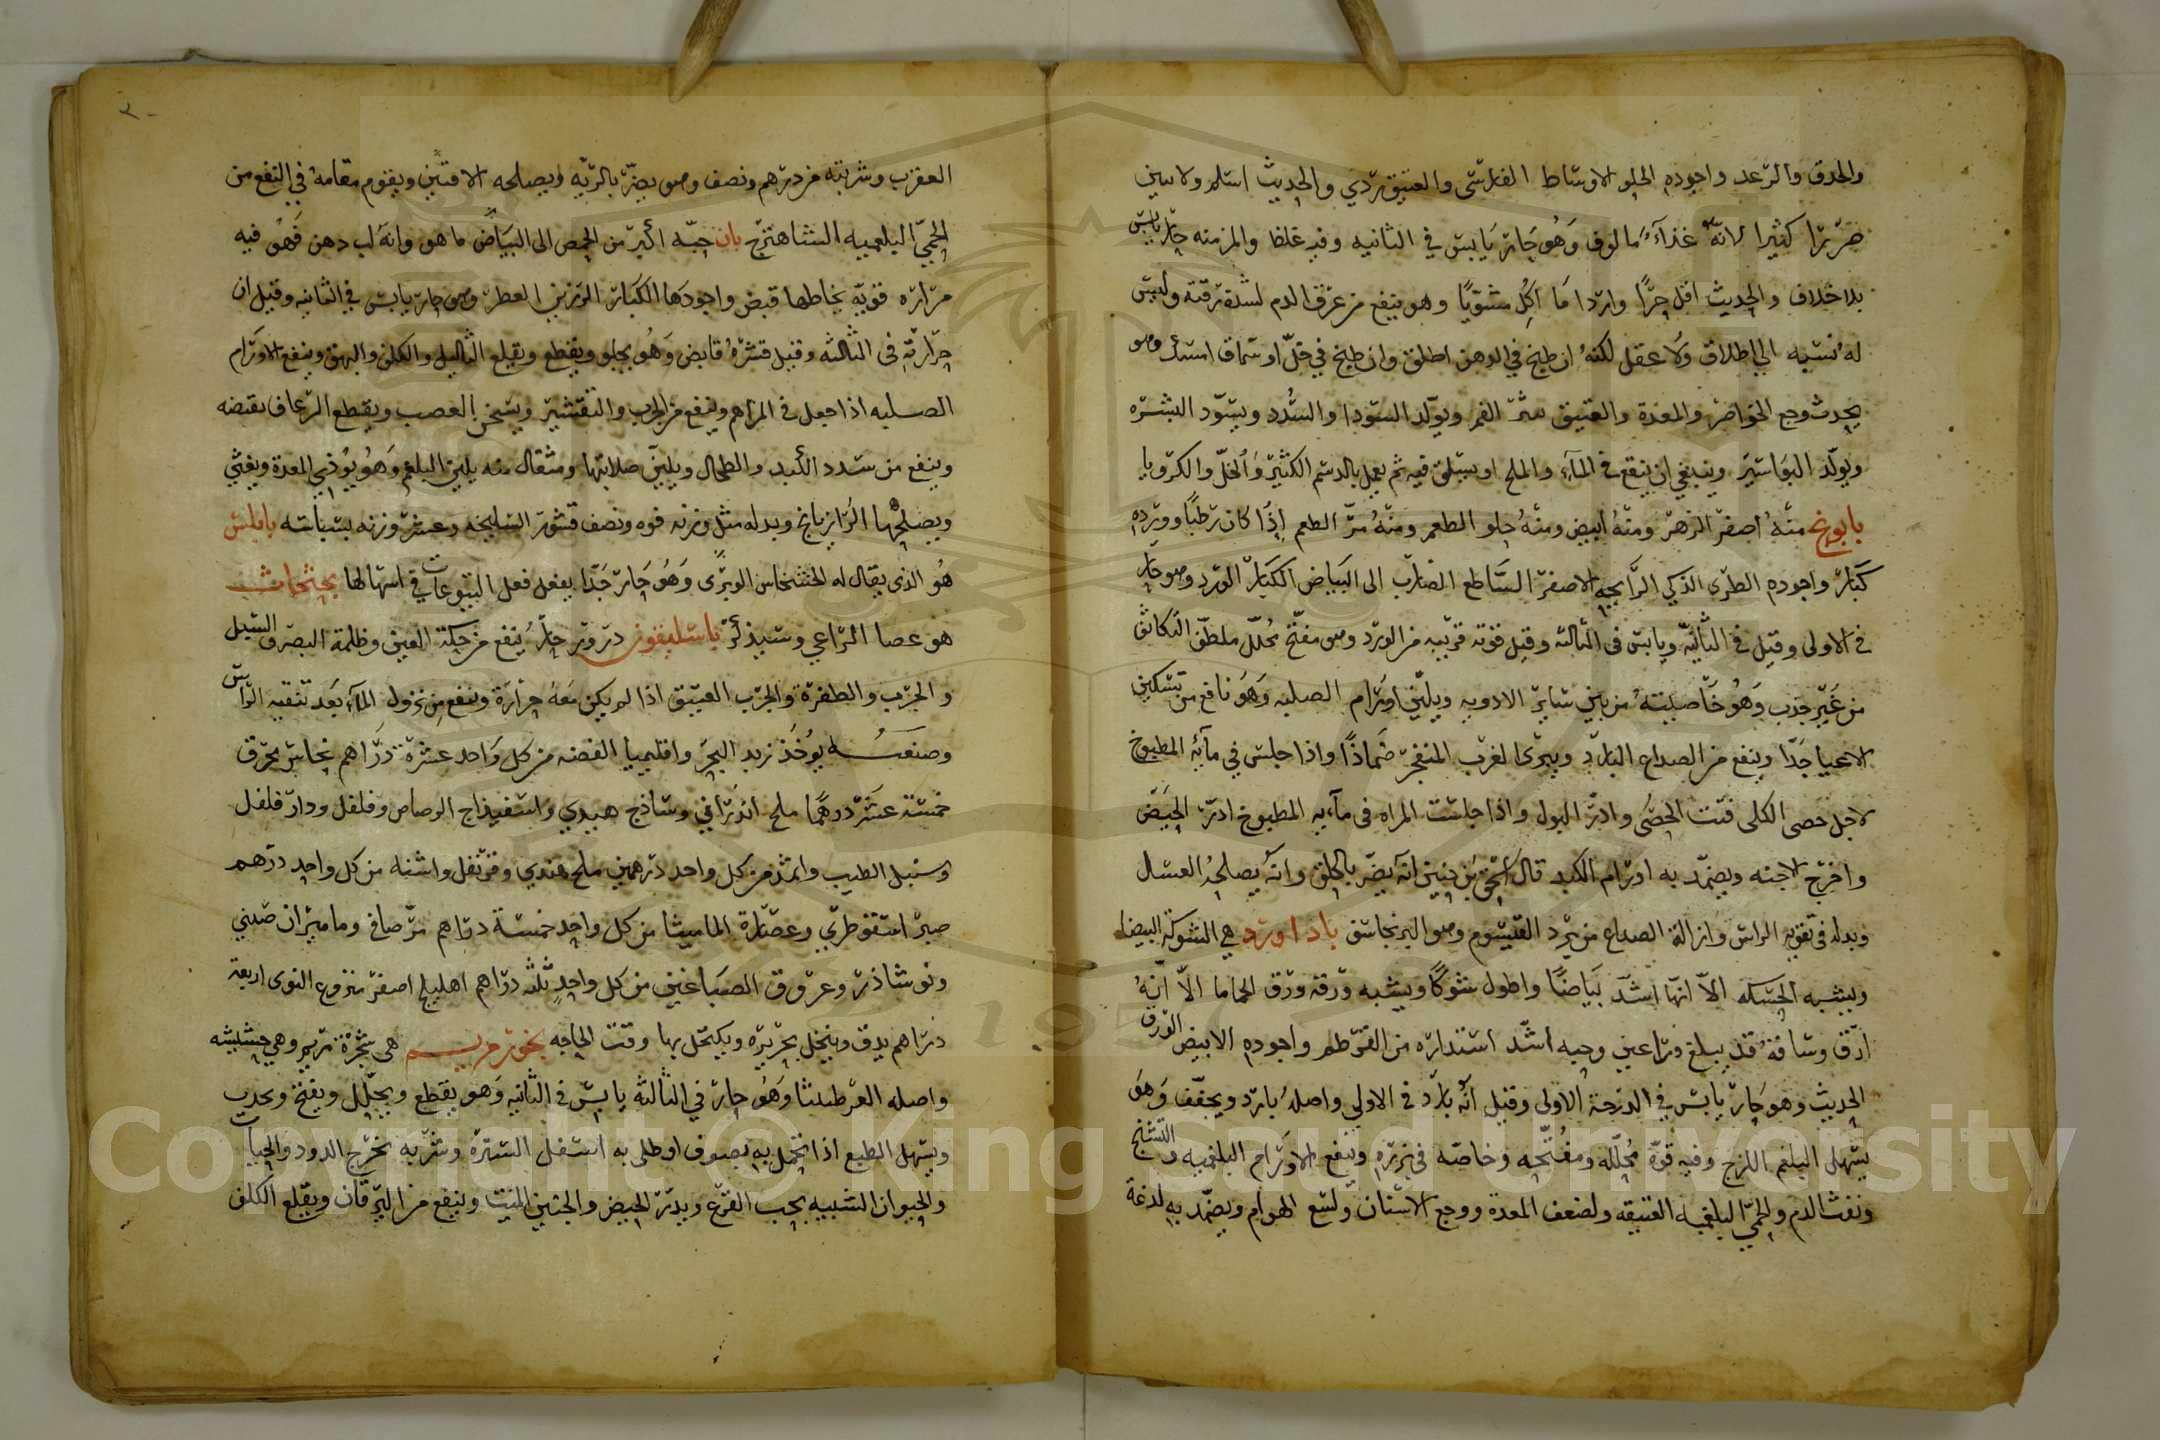 والحدق والرعد واجوده الحلو الاوساط الفارسى والعتيق ردي والحديث اسلم ولايبين
ضررا كثيرا لانه غذاء مالوف وهو حار يابس في الثانيه وفيه غلظ والمزمنه حار يابس
بلا خلاف والحديث اقل حرا واردا ما اكل مشويا وهو ينفع من عرق الدم لشدة رقته وليس
له نسبه الى اطلاق ولا عقل لكنه ان طبخ في الدهن اطلق وان طبخ في خل او سماق امسك وهو
يحدث وجع الخواصر والمعدة والعتيق يبثر الفم ويولد السودا والسدد ويسود البشره
ويولد البواسير وينبغي ان ينقع في الماء والملح او يسلق فيه ثم يعمل بالدسم الكثير والخل والكرويا
بابونج منه اصفر الزهر ومنه ابيض ومنه حلو الطعم ومنه مر الطعم اذا كان رطبا وورده
كبار واجوده الطرى الذكي الرايحه الاصفر الساطع الضارب الى البياض الكبار الورد وهو حار
في الاولى وقيل في الثانيه ويابس في الثالثه وقيل قوته قريبه من الورد وهو مفتح محلل ملطف التكاثف
من غير جذب وهو خاصيته من بين ساير الادويه ويلين اورام الصلبه وهو نافع من تسكين
الاعيا جدا وينفع من الصداع البارد ويبرى لغرب المنفجر ضمادا واذا جلس في مآئه المطبوخ
لاجل حصى الكلى فتت الحصى وادر البول واذا جلست المراه في مآئه المطبوخ ادر الحيض
واخرج الاجنه ويضمد به اورام الكبد قال اسحق بن حنين انه يضر بالحلق وانه يصلحه العسل
وبدله في تقويه الراس وازالة الصداع من برد القيسوم وهو البرنجاسف باداورد هي الشوكة البيضا
ويشبه الحسكه الا انها اشد بياضا واطول شوكا ويشبه ورقه ورق الحماما الا انه
ادق وساقه قد يبلغ ذراعين وحبه اشد استداره من القرطم واجوده الابيض الورق
الحديث وهو حار يابس في الدرجة الاولى وقيل انه بارد في الاولى واصله بارد ويجفف وهو
يسهل البلغم اللزج وفيه قوة محلله ومفتحه وخاصه في بزره وينفع الاورام البلغميه والتشنج
ونفث الدم والحمي البلغميه العتيقه ولضعف المعدة ووجع الاسنان ولسع الهوام ويضمد به لدغة
٣٠
العقرب وشربته من درهم ونصف وهو يضر بالريه ويصلحه الافتين ويقوم مقامه في النفع من
الحمي البلغميه الشاهترج بان حبه اكبر من الحمص الى البياض ما هو وانه لب دهن فهو فيه
مراره قويه يخالطها قبض واجودها الكبار الرزين العطر وهو حار يابس في الثانيه وقيل ان
حرارته في الثالثه وقيل قشره قابض وهو يجلو ويقطع ويقلع الثآليل والكلف والبهق وينفع الاورام
الصلبه اذا جعل في المراهم وينفع من الجرب والتقشير ويسخن العصب ويقطع الرعاف بقبضه
وينفع من سدد الكبد والطحال ويلين صلابتها ومثقال منه يلين البلغم وهو يوذي المعدة ويغثي
ويصلحها الرازيانج وبدله مثل وزنه فوه ونصف قشور السليخه وعشر وزنه بسباسه بابلس
هو الذى يقال له الخشخاش الوبرى وهو حار جدا يفعل فعل اليتوعات في اسهالها بخشخاشب
هو عصا الراعي وسيذكر باسليقون درور حار ينفع من حكة العين وظلمة البصر والسبل
والجرب والطفرة والجرب العتيق اذا لم يكن معه حرارة وينفع من نزول الماء بعد تنقيه الراس
وصنعته يوخذ زبد البحر واقليميا الفضه من كل واحد عشرة دراهم نحاس محرق
خمسة عشر درهما ملح اندراني وساذج هندي واسفيذاج الرصاص وفلفل ودار فلفل
وسنبل الطيب واثمد من كل واحد درهمين ملح هندي وقرنفل واشنه من كل واحد درهم
صبر اسقوطري وعصارة الماميثا من كل واحد خمسة دراهم مر صافي وماميران صيني
ونوشاذر وعروق الصباغين من كل واحد ثلثه دراهم اهليلج اصفر منزوع النوى اربعة
دراهم يدق وينخل بحريره ويكتحل بها وقت الحاجه بخور مريم هي شجرة مريم وهي حشيشه
واصله العرطنيثا وهو حار في الثالثه يابس في الثانيه وهو يقطع ويحلل ويفتح ويجذب
ويسهل الطبع اذا تحمل به بصوف او طلى به اسفل السرة وشربه يخرج الدود والحيات
والحيوان الشبيه بحب القرع ويدر الحيض والجنين الميت وينفع من اليرقان ويقلع الكلف
Copyright © King Saud University